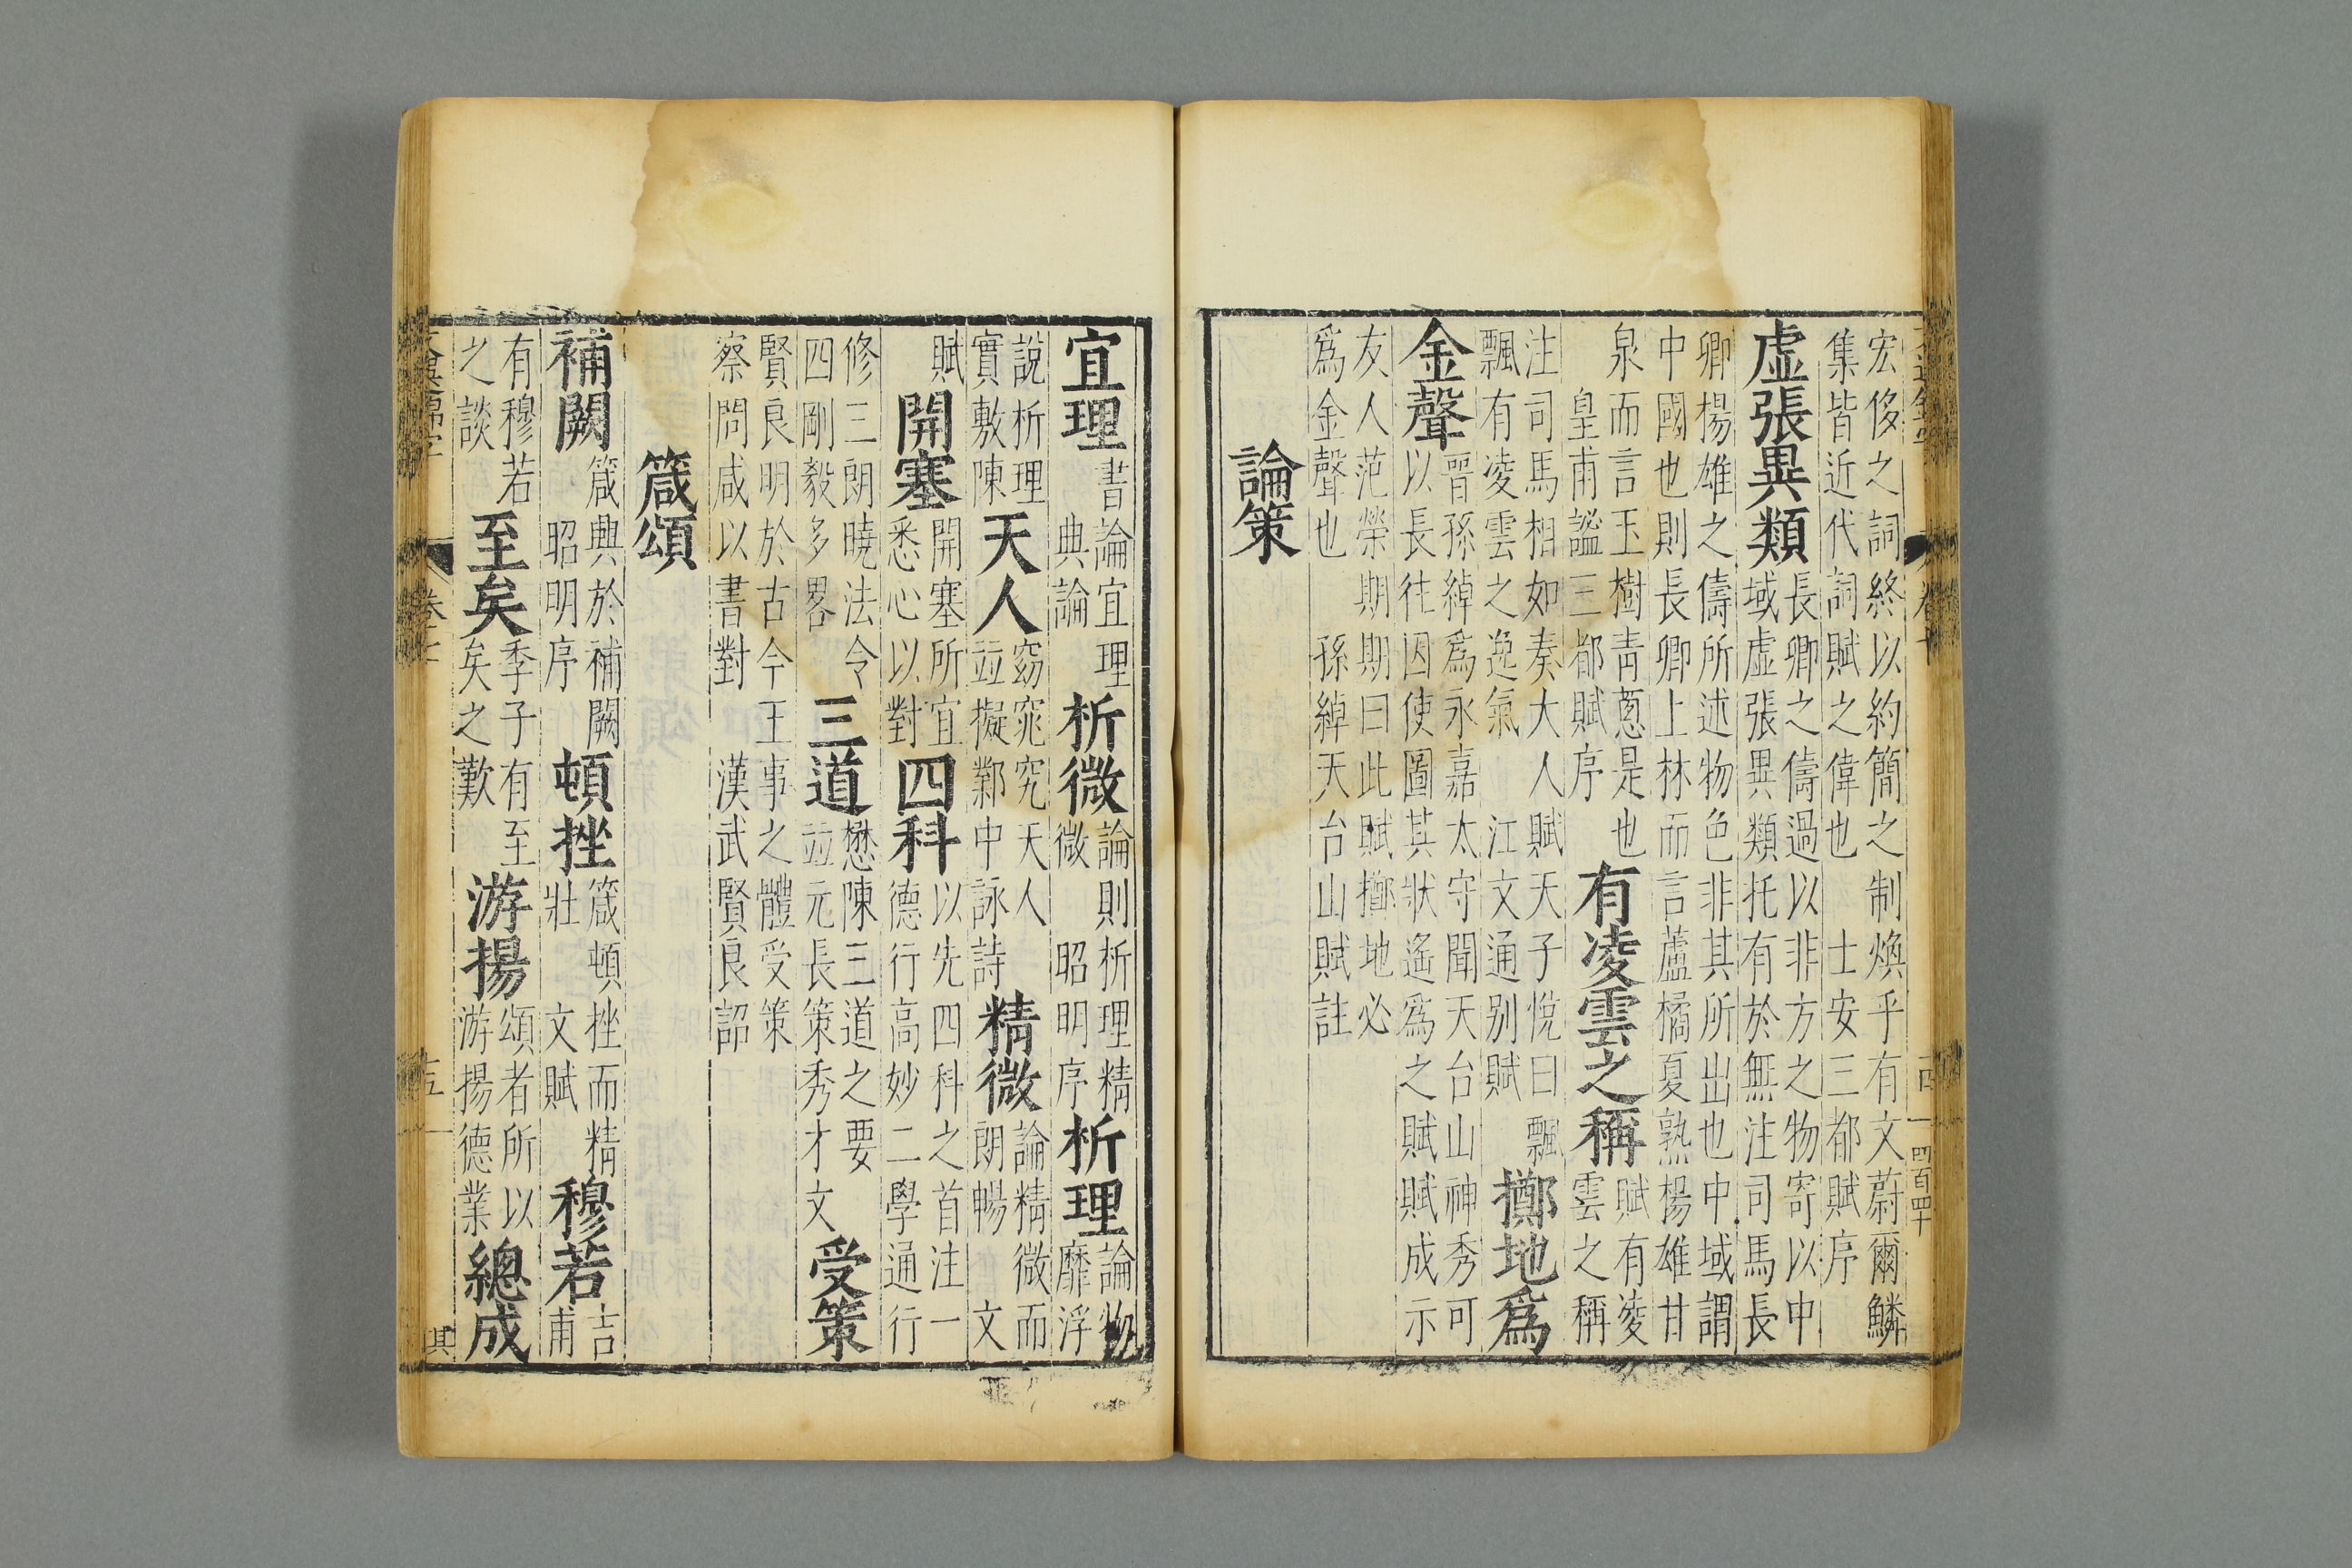 宏侈之詞終以約簡之制煥乎有文蔚爾鱗
集皆近代詞賦之偉也 士安三都賦序
虛張異類
長卿之儔過以非方之物寄以中
域虛張異類托有於無注司馬長
卿揚雄之儔所述物色非其所出也中域謂
中國也則長卿上林而言蘆橘夏熟揚雄甘
泉而言玉樹青蔥是也
皇甫謐三都賦序
有凌雲之稱
賦有凌
雲之稱
注司馬相如奏大人賦天子悅曰飄
飄有凌雲之逸氣 江文通別賦
擲地爲
金聲
晉孫綽爲永嘉太守聞天台山神秀可
以長往因使圖其狀遙爲之賦賦成示
友人范榮期期曰此賦擲地必
爲金聲也 孫綽天台山賦註
論策
十四
四百四十
宜理
書論宜理
典論
析微
論則析理精
微 昭明序
析理
論物
靡浮
說析理
實敷陳
天人
窈窕究天人
竝擬鄴中詠詩
精微
論精微而
朗暢 文
賦
開塞
開塞所宜
悉心以對
四科
以先四科之首注一
德行高妙二學通行
修三朗曉法令
四剛毅多畧
三道
懋陳三道之要
竝元長策秀才文
受策
賢良明於古今王事之體受策
察問咸以書對 漢武賢良詔
箴頌
補闕
箴興於補闕
昭明序
頓挫
箴頓挫而精
壯 文賦
穆若
吉
甫
有穆若
之談
至矣
季子有至
矣之歎
游揚
頌者所以
游揚德業
總成
十五
其